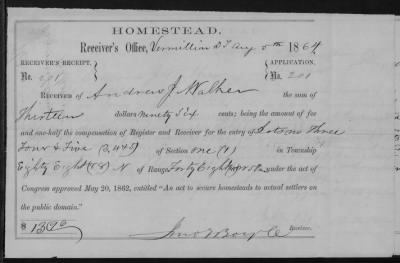 HOMESTEAD.
Receiver's Office, Vermillion D.T. Aug 5th 1864
RECEIVER'S RECEIPT, APPLICATION,
No. 201 No. 201
RECEIVED OF Andrew J. Walker the sum of
Thirteen dollars Ninety Six cents; being the amount of fee
and one-half the compensation of Register and Receiver for the entry of Lots No Three
Four & Five (3, 4 & 5) of Section One (1) in Township
Eighty Eight (88) N of Range Forty Eight under the act of
Congress approved May 20, 1862, entitled "An act to secure homesteads to actual settlers on
the public domain."
$ 13.96 Receiver.